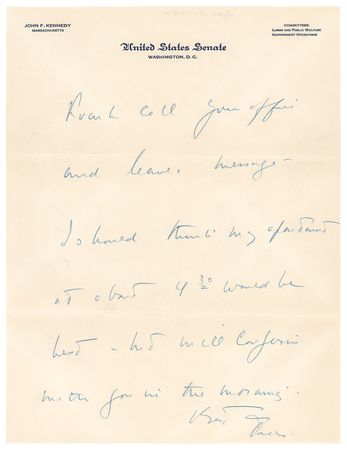 JOHN F. KENNEDY
MASSACHUSETTS
COMMITTEES:
LABOR AND PUBLIC WELFARE
GOVERNMENT OPERATIONS
United States Senate
WASHINGTON, D.C.
call your office
and leave message -
I should think my apartment
at about 4 30 would be
best - but will confirm
with you in the morning.